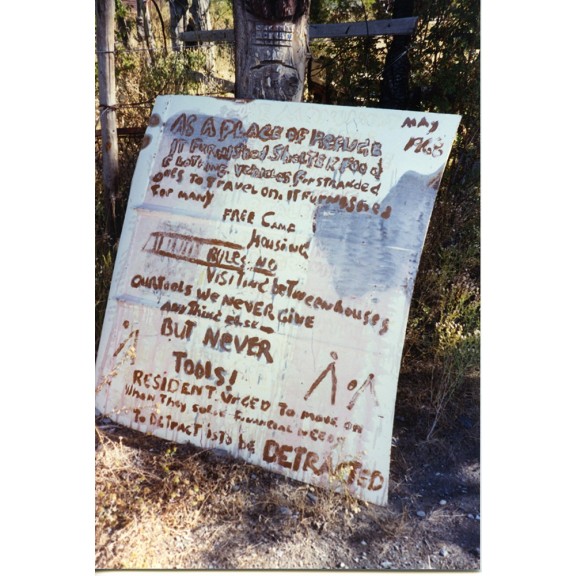 AS A PLACE OF REFUGE
IT FURNISHED SHELTER FOOD
CLOTHING, VEHICLES FOR STRANDED
ONES TO TRAVEL ON. IT FURNISHED
FOR MANY
FREE CAMP
HOUSING
RULES NO
VISITING BETWEEN HOUSES
OUR TOOLS WE NEVER GIVE
ANYTHING ELSE
BUT NEVER
TOOLS!
RESIDENT URGED TO MOVE ON
WHEN THEY FINANCIAL NEEDS
TO DETRACT IS TO BE DETRACTED
MAY